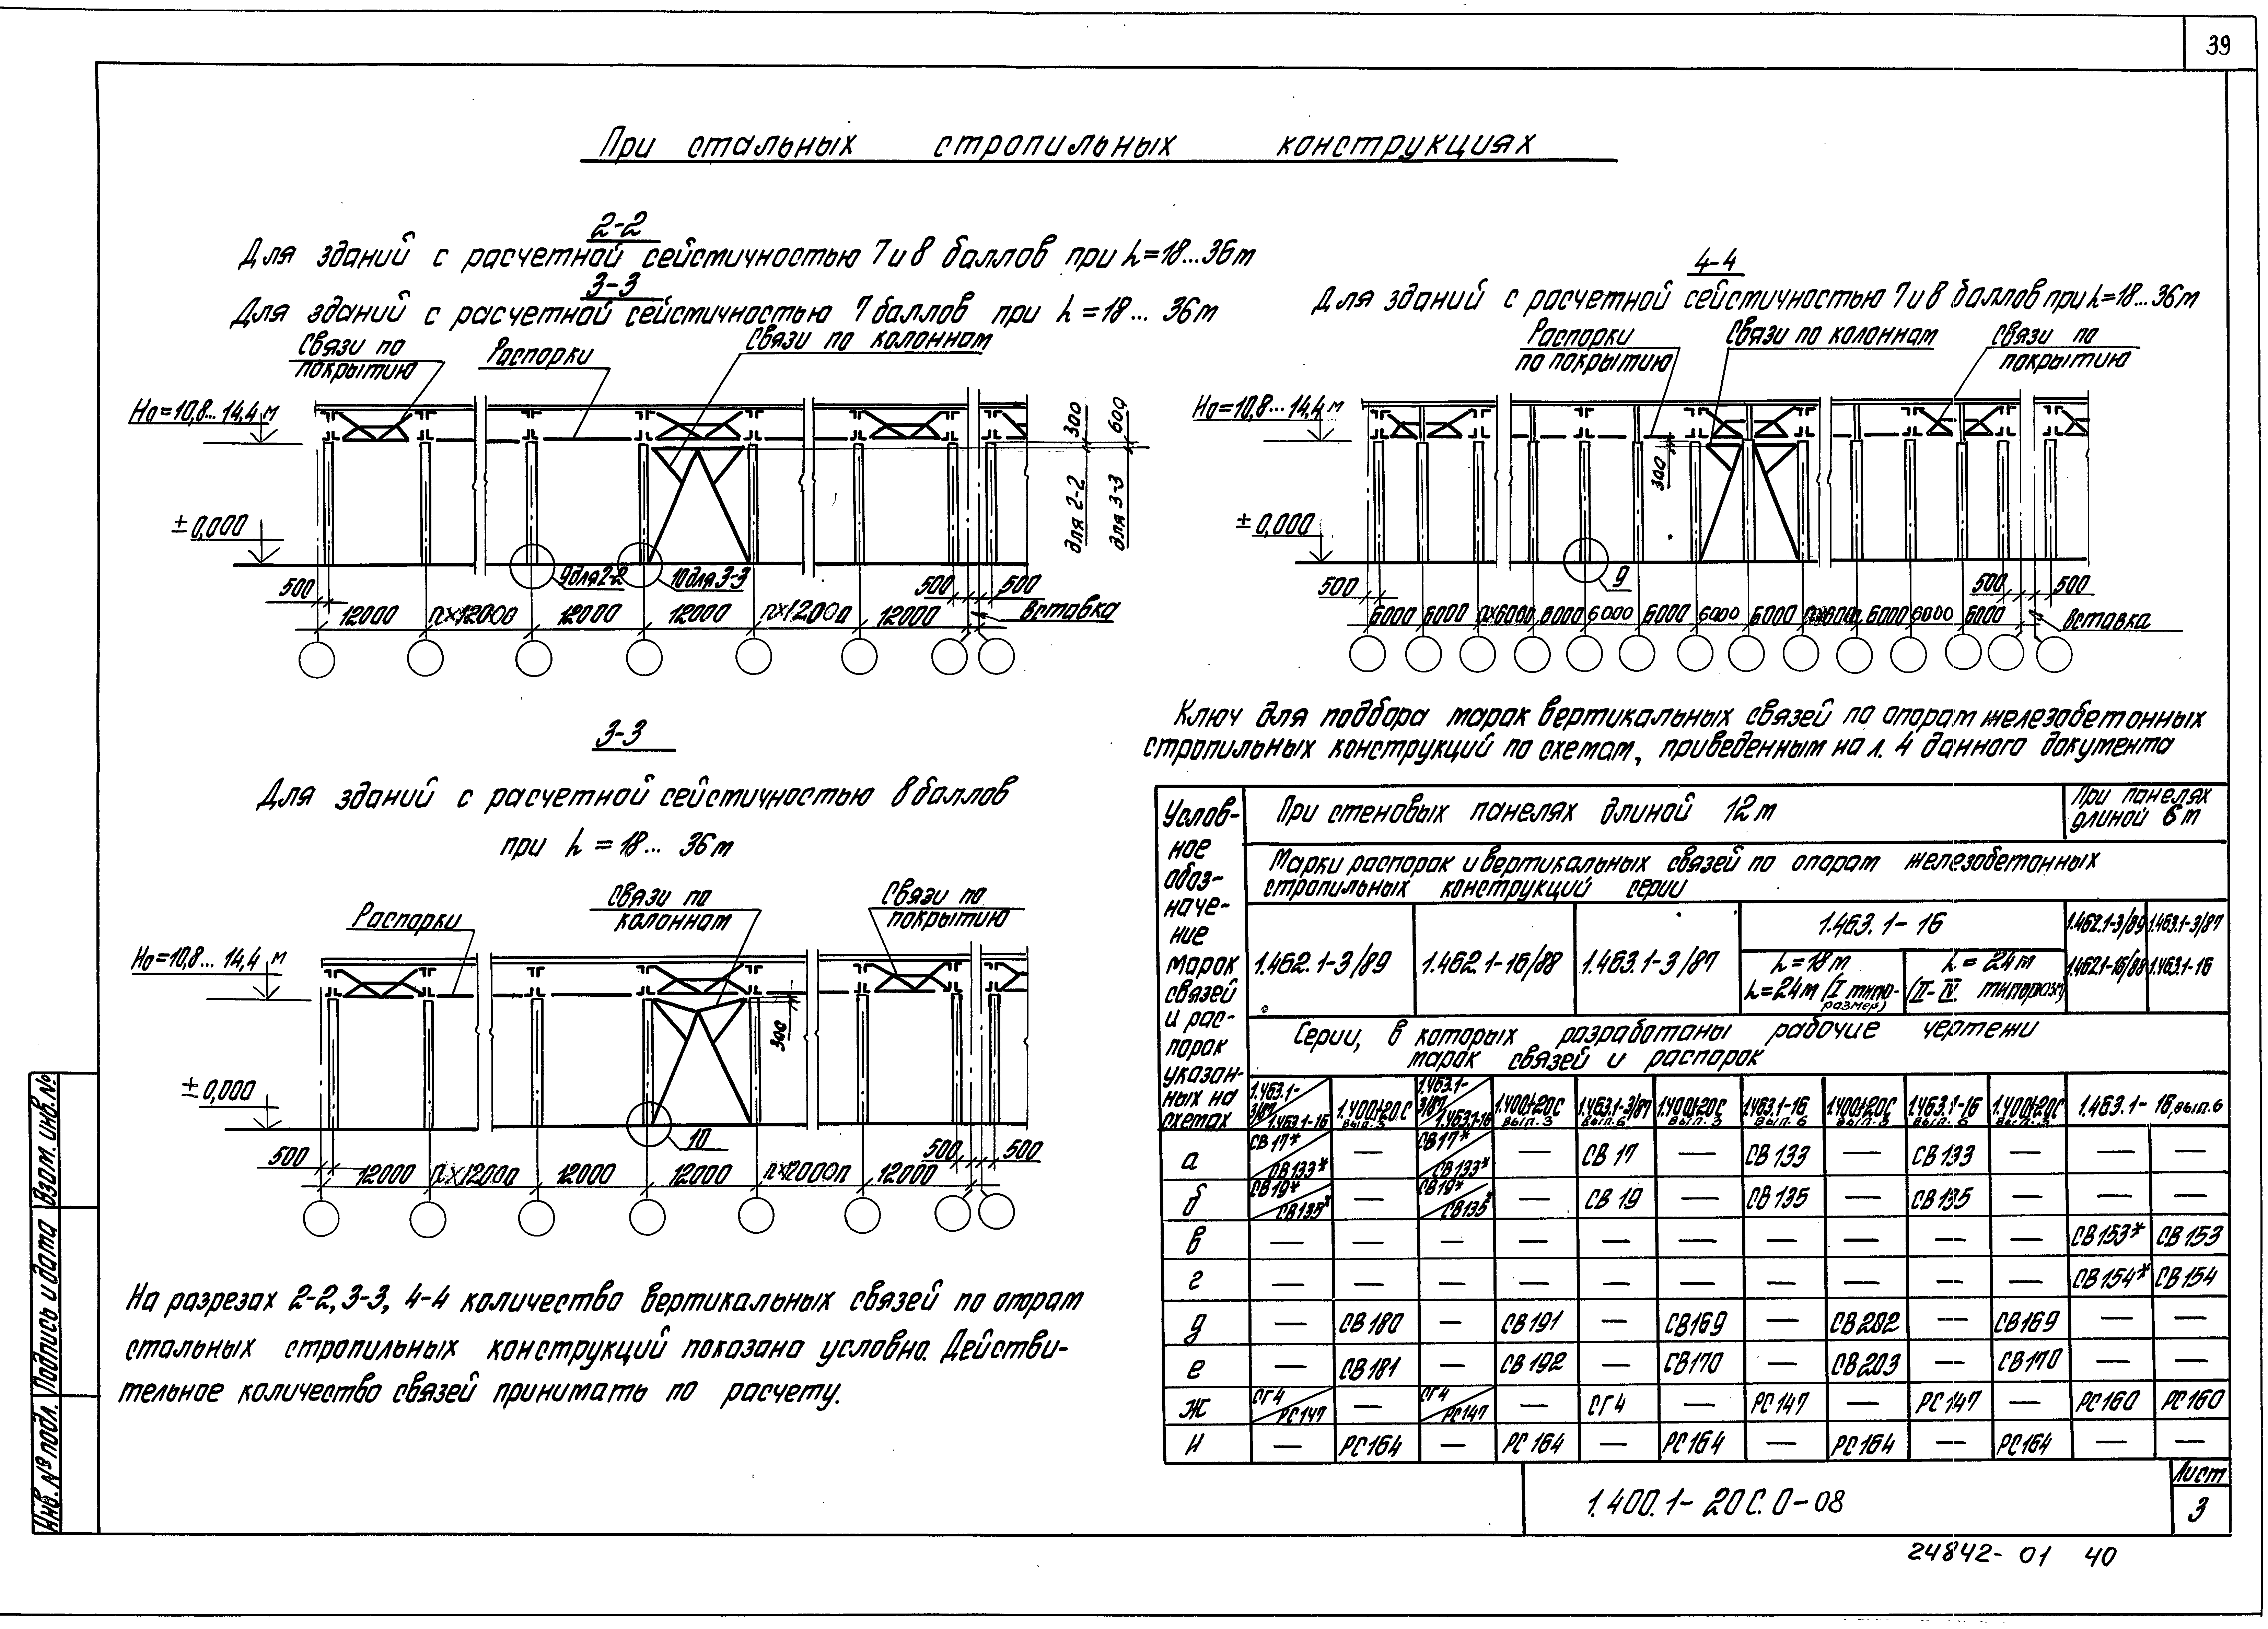 39
При стальных стропильных конструкциях
2-2
Для зданий с расчетной сейсмичностью 7 и 8 баллов при h=18...36м
3-3
Для зданий с расчетной сейсмичностью 7 баллов при h=18... 36м
Связи по
покрытию
Распорки
Связи по колоннам
Но=10,8...14,4 м
± 0,000
300
600
для 2-2
для 3-3
9 для 2-2
10 для 3-3
500
500
500
12000
n×12000
12000
12000
n×12000
12000
Вставка
4-4
Для зданий с расчетной сейсмичностью 7 и 8 баллов при h=18...36м
Распорки
по покрытию
Связи по колоннам
Связи по
покрытию
Но=10,8...14,4 м
300
± 0,000
9
500
500
500
6000 6000 n×6000 6000 6000 6000 6000 6000 n×6000 6000 6000 6000
Вставка
3-3
Для зданий с расчетной сейсмичностью 8 баллов
при h = 18... 36м
Распорки
Связи по
колоннам
Связи по
покрытию
Но=10,8... 14,4 м
300
± 0,000
10
500
500
500
12000
n×12000
12000
12000
12000
На разрезах 2-2, 3-3, 4-4 количество вертикальных связей по опорам
стальных стропильных конструкций показана условно. Действи-
тельное количество связей принимать по расчету.
Ключ для подбора марок вертикальных связей по опорам железобетонных
стропильных конструкций по схемам, приведенным на л. 4 данного документа
Услов-
ное
обоз-
наче-
ние
марок
связей
и рас-
порок
указан-
ных на
схемах
При стеновых панелях длиной 12м
При панелях
длиной 6м
Марки распорок и вертикальных связей по опорам железобетонных
стропильных конструкций серии
1.462.1-3/89
1.462.1-16/88
1.463.1-3/87
1.463.1-16
h=18м
h=24м (I типо-
размер)
h=24м
(II-IV типоразм)
1.462.1-3/89
1.462.1-16/88
1.463.1-3/87
1.463.1-16
Серии, в которых разработаны рабочие чертежи
марок связей и распорок
1.463.1-3/87 / 1.463.1-16 1.400.1-20С вып. 3 1.463.1-3/87 / 1.463.1-16 1.400.1-20С вып. 3 1.463.1-3/87 вып. 6 1.400.1-20С вып. 3 1.463.1-16 вып. 6 1.400.1-20С вып. 3 1.463.1-16 вып. 6 1.400.1-20С вып. 3 1.463.1-16, вып. 6
а СВ17* / СВ133* — СВ17* / СВ133* — СВ 17 — СВ 133 — СВ 133 — — —
б СВ19* / СВ135* — СВ19* / СВ135* — СВ 19 — СВ 135 — СВ 135 — — —
в — — — — — — — — — — СВ153* СВ 153
г — — — — — — — — — — СВ154* СВ 154
д — СВ 180 — СВ 191 — СВ169 — СВ 202 — СВ169 — —
е — СВ 181 — СВ 192 — СВ170 — СВ 203 — СВ170 — —
ж СГ4 / РС147 — СГ4 / РС147 — СГ4 — РС147 — РС147 — РС160 РС160
И — РС164 — РС164 — РС164 — РС164 — РС164 — —
1.400.1-20С.0-08
Лист
3
24842-01 40
Взам. инв. №
Подпись и дата
Инв. № подл.